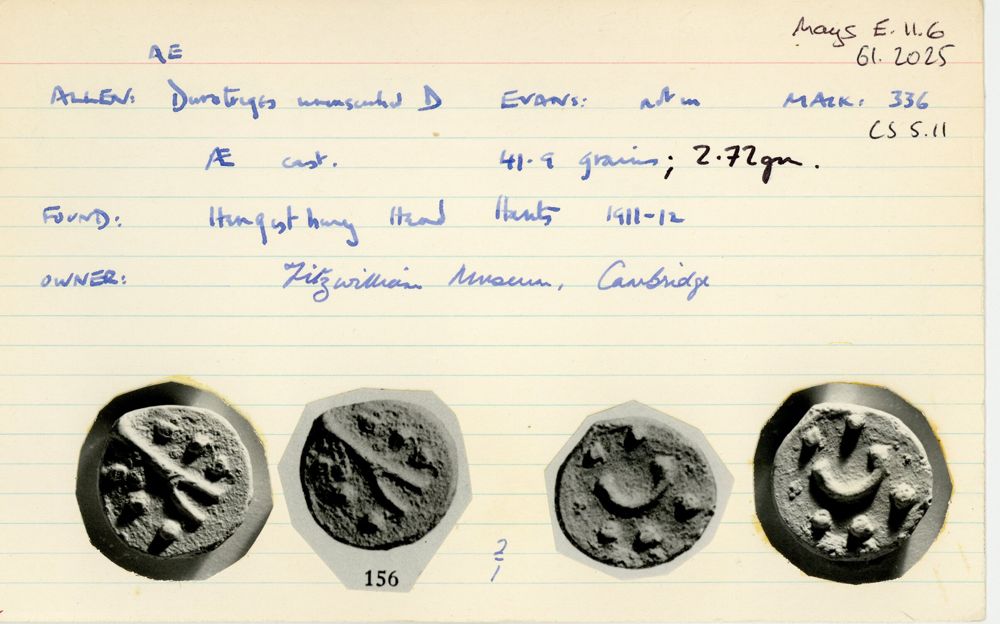 Mays E.11.6
61.2025
AE
ALLEN: Durotriges uninscribed D EVANS: not in MACK: 336
CS 5.11
Æ cast. 41.9 grains; 2.72gm.
FOUND: Hengistbury Head Hants 1911-12
OWNER: Fitzwilliam Museum, Cambridge
2/1
156